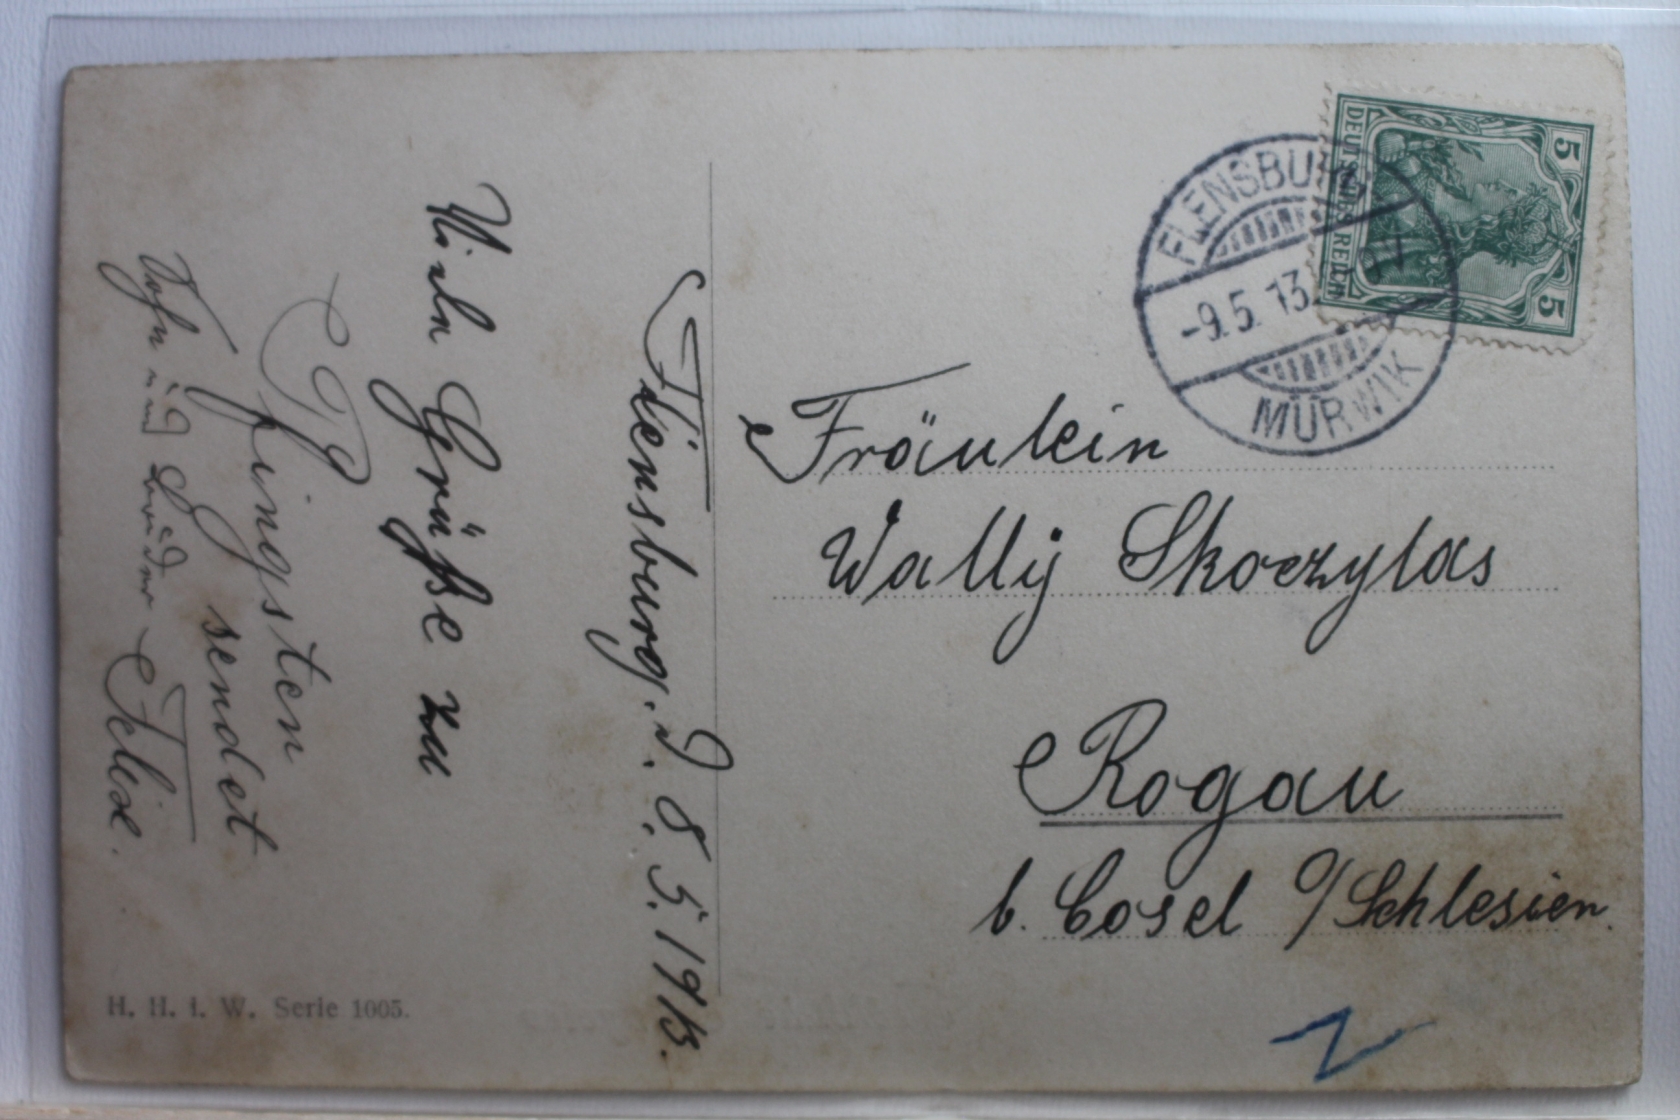 Flensburg. d. 8. 5. 1913.
Viele Grüße zu
Pfingsten
sendet
Sohn und Bruder Felix.
H. H. i. W. Serie 1005.
DEUTSCHES REICH
5 5
FLENSBURG
-9.5.13.
MÜRWIK
Fräulein
Wally Skoczylas
Rogau
b. Cosel O/Schlesien.